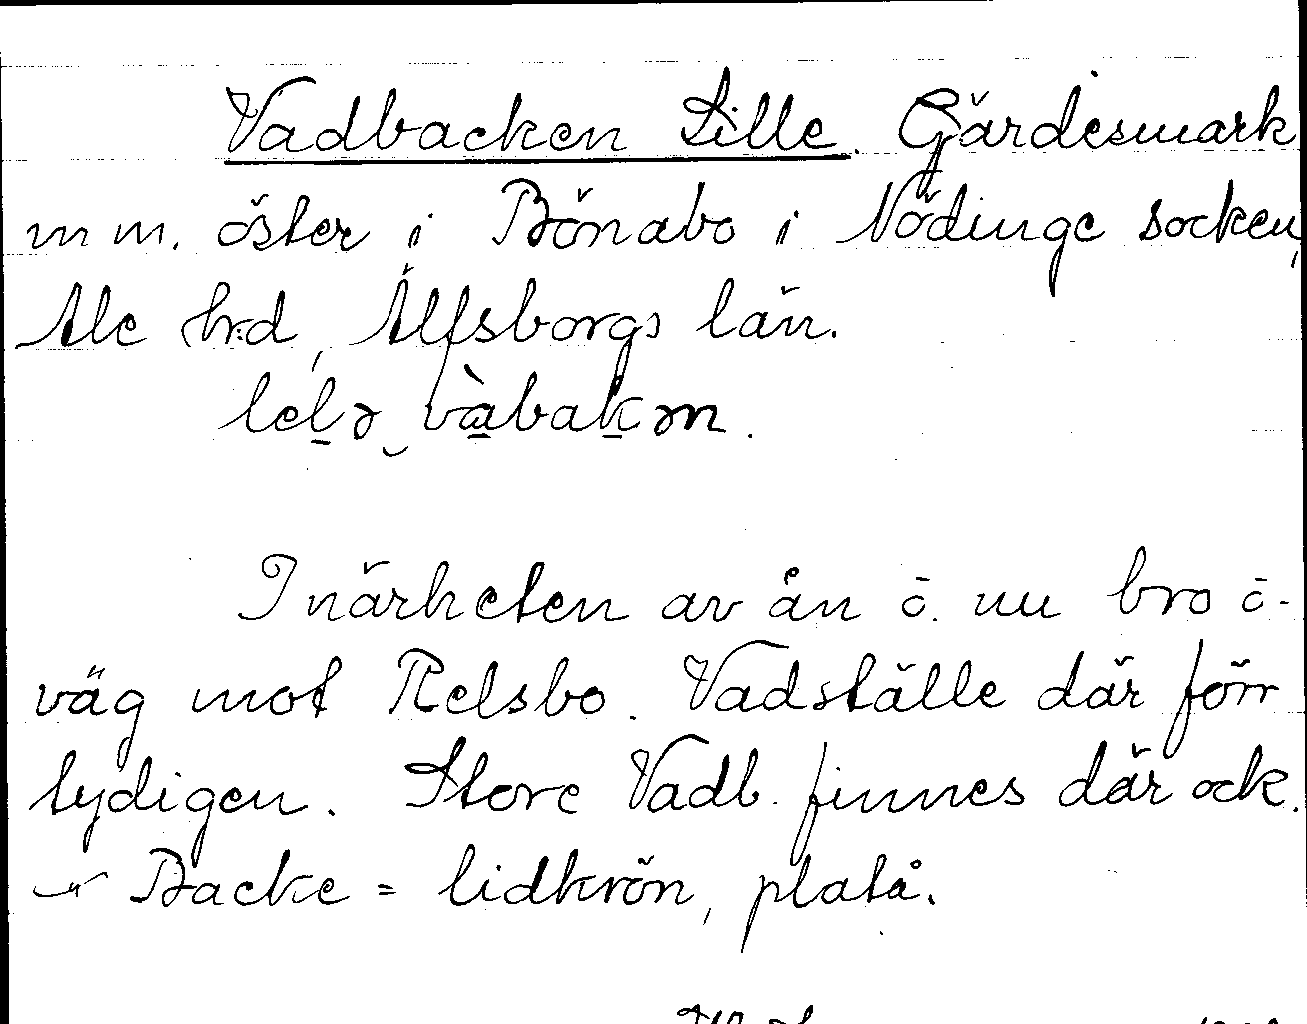 Vadbacken Lille. Gärdesmark
m m. öster i Bönabo i Nödinge socken,
Ale hrd, Älfsborgs län.
lel̠ə‿và̠bak̠ən.
I närheten av ån ō. nu bro ō.
väg mot Relsbo. Vadställe där förr
tydigen. Store Vadb. finnes där ock.
Backe = lidkrön, platå.